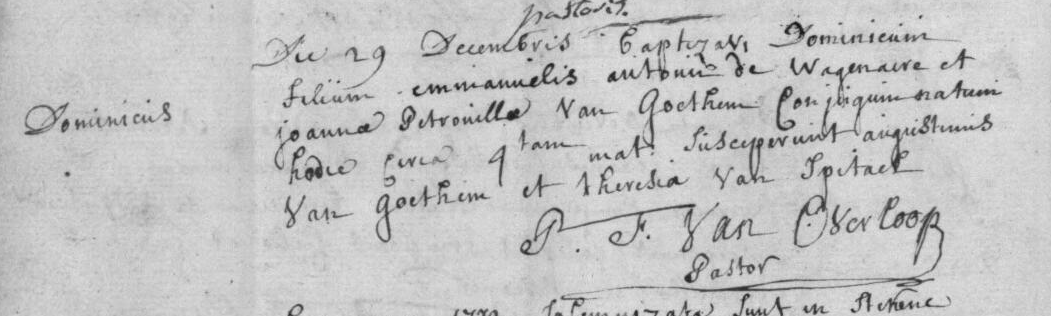 pastoris.
Die 29 Decembris baptizavi Dominicum
Dominicus
filium emmanuelis antonii de Wagenaere et
joannæ Petronillæ Van Goethem Conjugum natum
hodie circa 4tam mat. Susceperunt augustinus
Van Goethem et theresia Van Spitael
P. F. Van Overloop
Pastor
sunt in Stekene